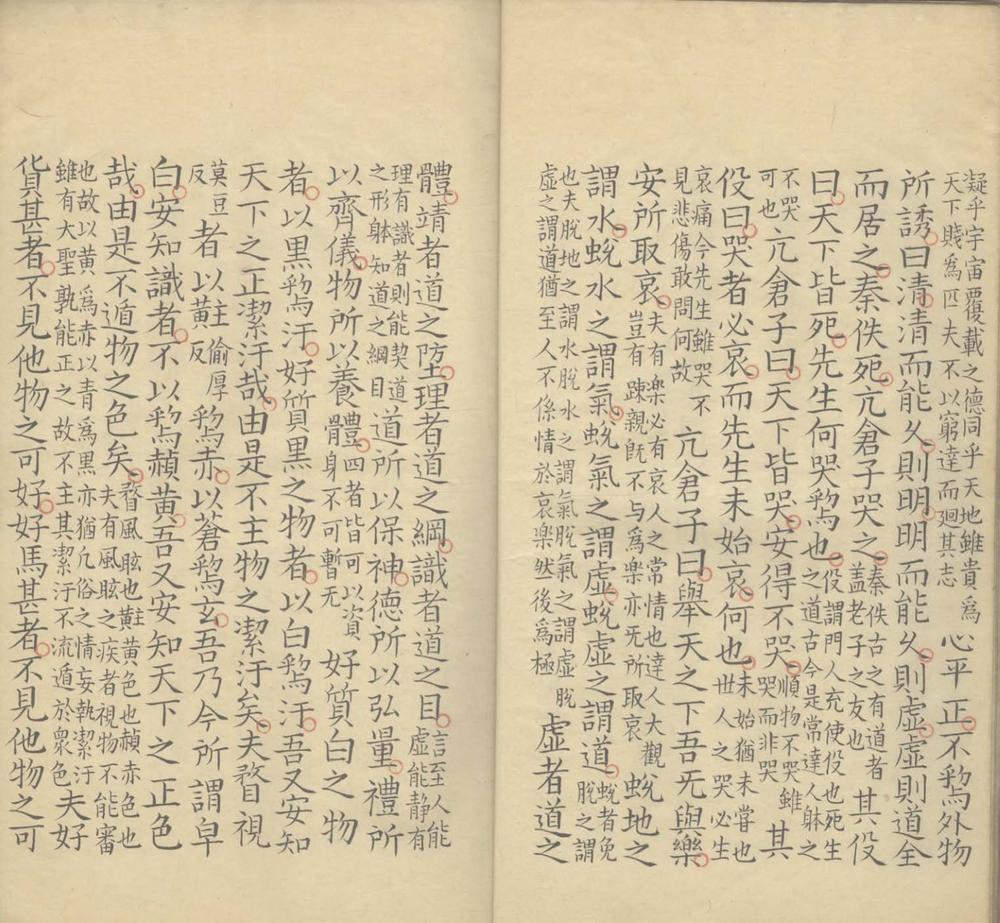 凝乎宇宙覆載之德同乎天地雖貴爲
天下賤爲匹夫不以窮達而廻其志
心平正不爲外物
所誘曰清清而能久則明明而能久則虛虛則道全
而居之秦佚死亢倉子哭之
秦佚古之有道者
蓋老子之友也
其役
曰天下皆死先生何哭爲也
役謂門人充使役也死生
之道古今是常達人躰之
不哭
可也
亢倉子曰天下皆哭安得不哭
順物不哭雖
哭而非哭
其
役曰哭者必哀而先生未始哀何也
未始猶未嘗也
世人之哭必生
哀痛今先生雖哭不
見悲傷敢問何故
亢倉子曰舉天之下吾旡與樂
安所取哀
夫有樂必有哀人之常情也達人大觀
豈有踈親旣不与爲樂亦旡所取哀
蛻地之
謂水蛻水之謂氣蛻氣之謂虛蛻虛之謂道
蛻者免
脫之謂
也夫脫地之謂水脫水之謂氣脫氣之謂虛脫
虛之謂道猶至人不係情於哀樂然後爲極
虛者道之
體靖者道之埅理者道之綱識者道之目
言至人能
虛能静有
理有識者則能契道
之形躰知道之綱目
道所以保神德所以弘量禮所
以齊儀物所以養體
四者皆可以資
身不可暫无
好質白之物
者以黑爲汙好質黑之物者以白爲汙吾又安知
天下之正潔汙哉由是不主物之潔汙矣夫瞀視
莫豆
反
者以黈
主偷
反
厚
爲赤以蒼爲玄吾乃今所謂皁
白安知識者不以爲赬黃吾又安知天下之正色
哉由是不遁物之色矣
瞀風眩也黈黃色也赬赤色也
夫有風眩之疾者視物不能審
也故以黃爲赤以青爲黑亦猶凢俗之情妄執潔汙
雖有大聖孰能正之故不主其潔汙不流遁於衆色
夫好
貨甚者不見他物之可好好馬甚者不見他物之可